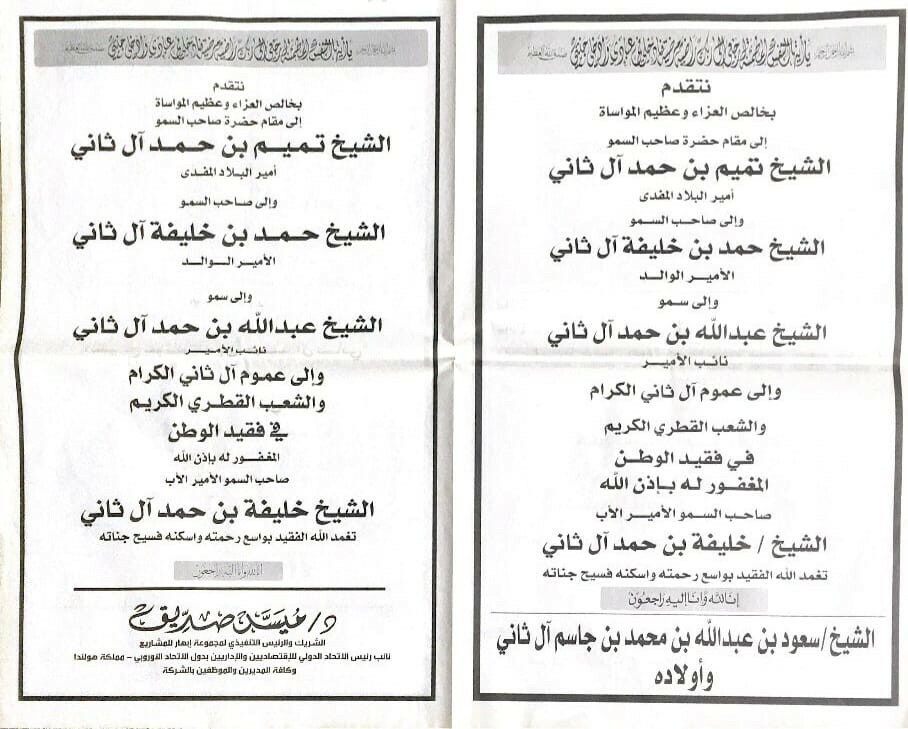 بسم الله الرحمن الرحيم يأيتها النفس المطمئنة ارجعي إلى ربك راضية مرضية فادخلي في عبادي وادخلي جنتي صدق الله العظيم
نتقدم
بخالص العزاء وعظيم المواساة
إلى مقام حضرة صاحب السمو
الشيخ تميم بن حمد آل ثاني
أمير البلاد المفدى
وإلى صاحب السمو
الشيخ حمد بن خليفة آل ثاني
الأمير الوالد
وإلى سمو
الشيخ عبدالله بن حمد آل ثاني
نائب الأمير
وإلى عموم آل ثاني الكرام
والشعب القطري الكريم
في فقيد الوطن
المغفور له بإذن الله
صاحب السمو الأمير الأب
الشيخ / خليفة بن حمد آل ثاني
تغمد الله الفقيد بواسع رحمته واسكنه فسيح جناته
إنا لله وإنا إليه راجعون
الشيخ/سعود بن عبدالله بن محمد بن جاسم آل ثاني
وأولاده
بسم الله الرحمن الرحيم يأيتها النفس المطمئنة ارجعي إلى ربك راضية مرضية فادخلي في عبادي وادخلي جنتي صدق الله العظيم
نتقدم
بخالص العزاء وعظيم المواساة
إلى مقام حضرة صاحب السمو
الشيخ تميم بن حمد آل ثاني
أمير البلاد المفدى
وإلى صاحب السمو
الشيخ حمد بن خليفة آل ثاني
الأمير الوالد
وإلى سمو
الشيخ عبدالله بن حمد آل ثاني
نائب الأمير
وإلى عموم آل ثاني الكرام
والشعب القطري الكريم
في فقيد الوطن
المغفور له بإذن الله
صاحب السمو الأمير الأب
الشيخ خليفة بن حمد آل ثاني
تغمد الله الفقيد بواسع رحمته واسكنه فسيح جناته
إنا لله وإنا إليه راجعون
د/ صديق
الشريك والرئيس التنفيذي لمجموعة إبهار للمشاريع
نائب رئيس الاتحاد الدولي للإقتصاديين والإداريين بدول الاتحاد الاوروبي - مملكة هولندا
وكافة المديرين والموظفين بالشركة